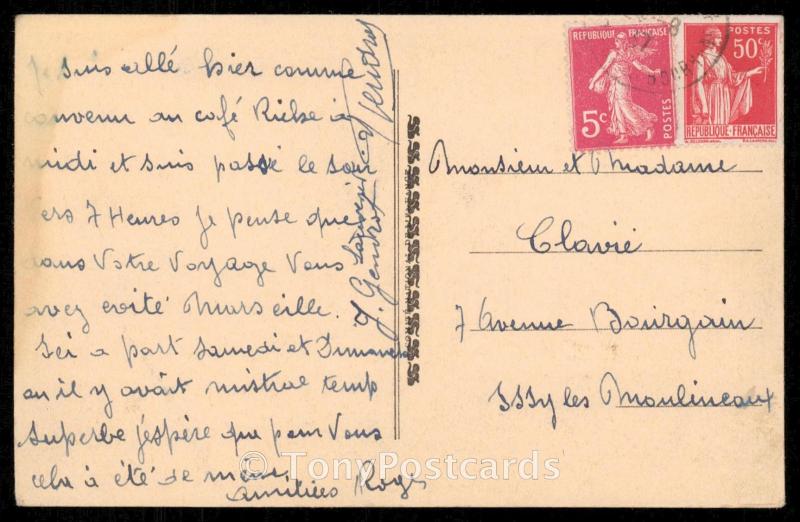 Suis allé hier comme
convenu au café Riche à
midi et suis passé le soir
vers 7 Heures je pense que
dans Votre Voyage Vous
avez evité Marseille.
Ici a part Samedi et Dimanche
ou il y avait mistral temp
superbe j'espère que pour Vous
cela à été de même
amitiées Roger
J. Gendrot
REPUBLIQUE FRANÇAISE
5c
POSTES
POSTES
50c
REPUBLIQUE-FRANÇAISE
Monsieur et Madame
Clavié
7 Avenue Bourgain
ISSy les Moulineaux
© TonyPostcards